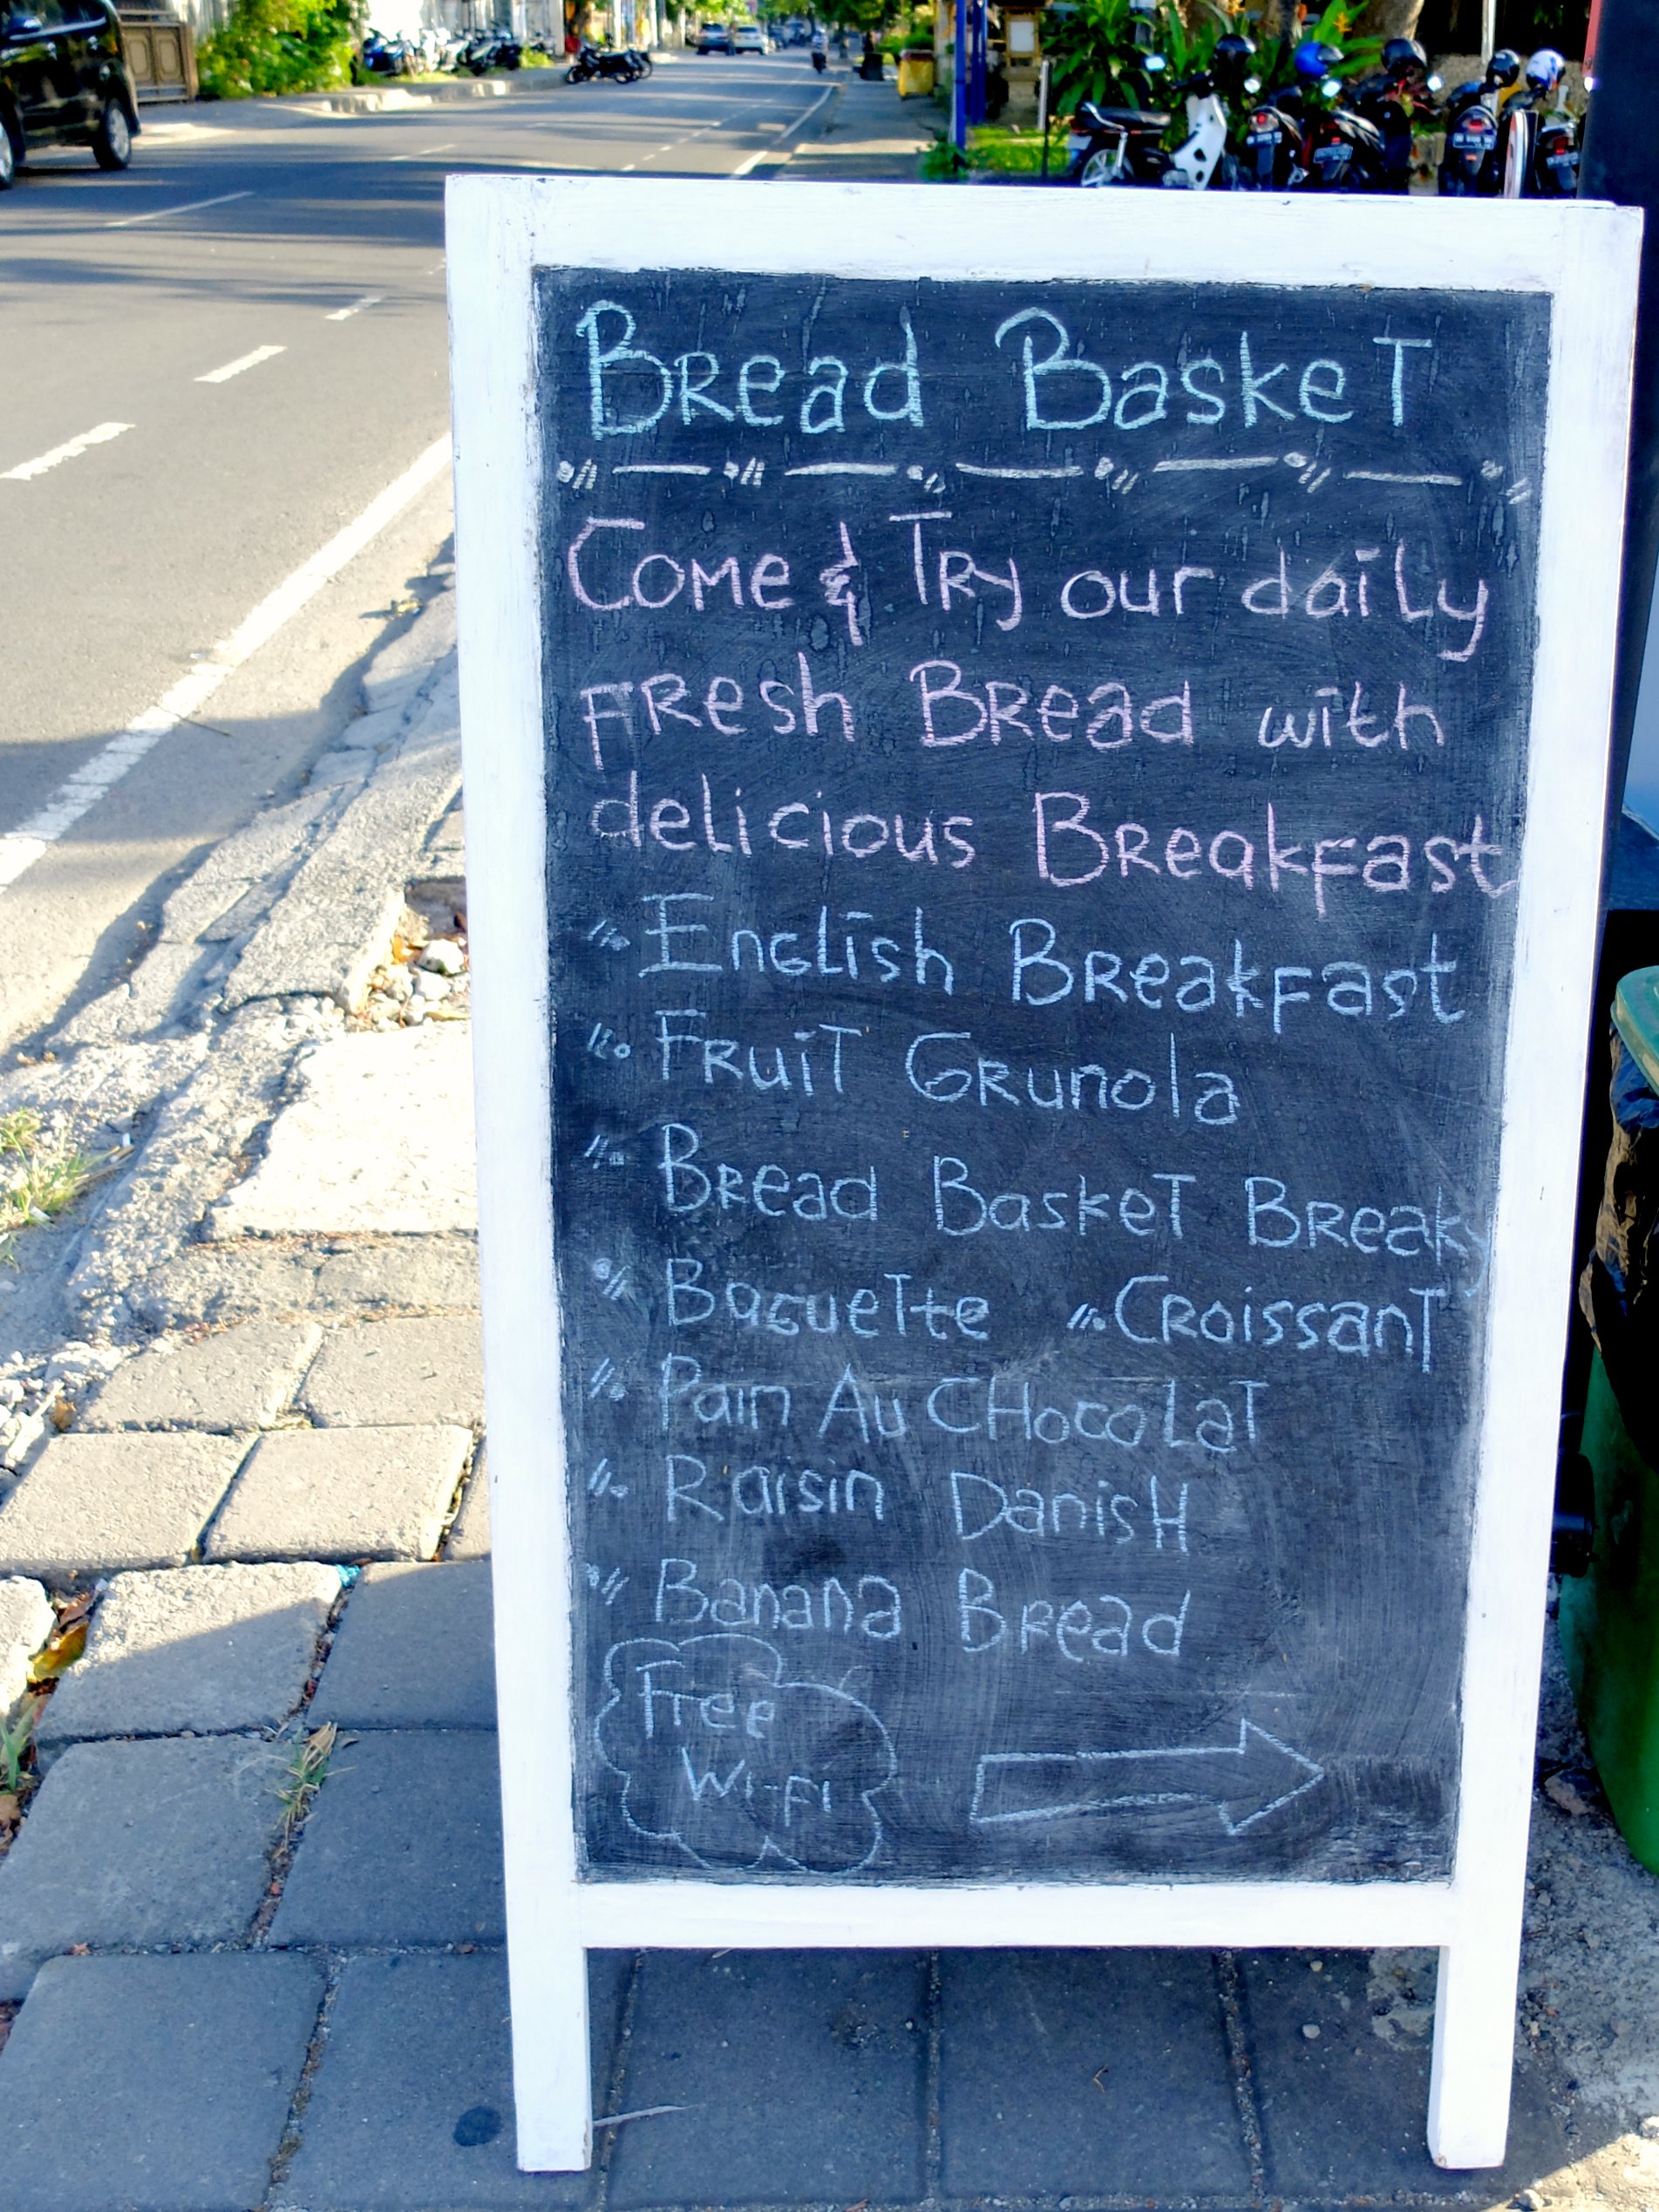 Bread Basket
Come & Try our daily
Fresh Bread with
delicious Breakfast
English Breakfast
Fruit Grunola
Bread Basket Breaky
Baguette Croissant
Pain Au CHocoLaT
Raisin DanisH
Banana Bread
Free
Wi-Fi